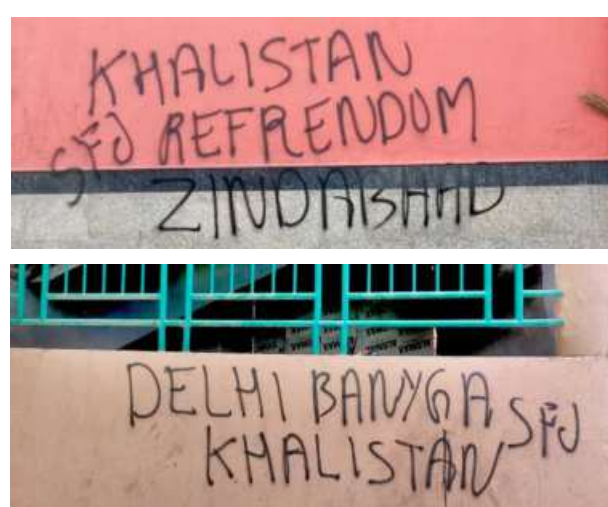 KHALISTAN
SFJ REFRENDUM
ZINDABAAD
DELHI BANYGA SFJ
KHALISTAN